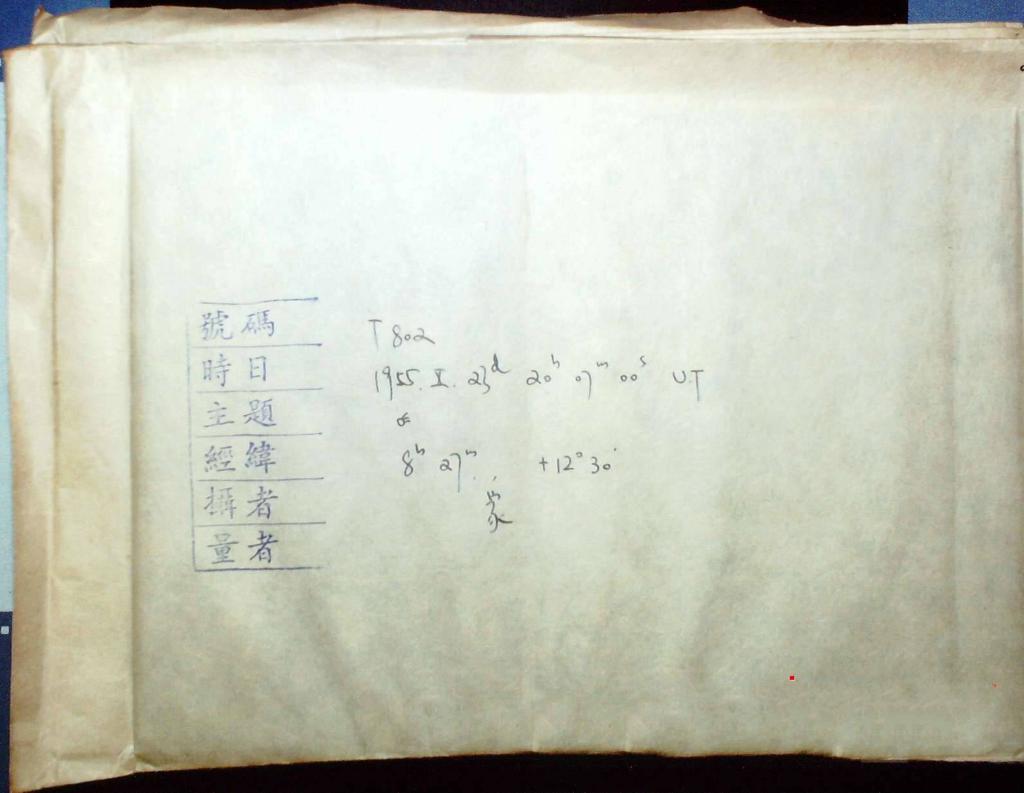 號碼 T 802
時日 1955. I. 23d 20h 07m 00s U.T
主題
經緯 8h 27m. +12° 30'
攝者
量者